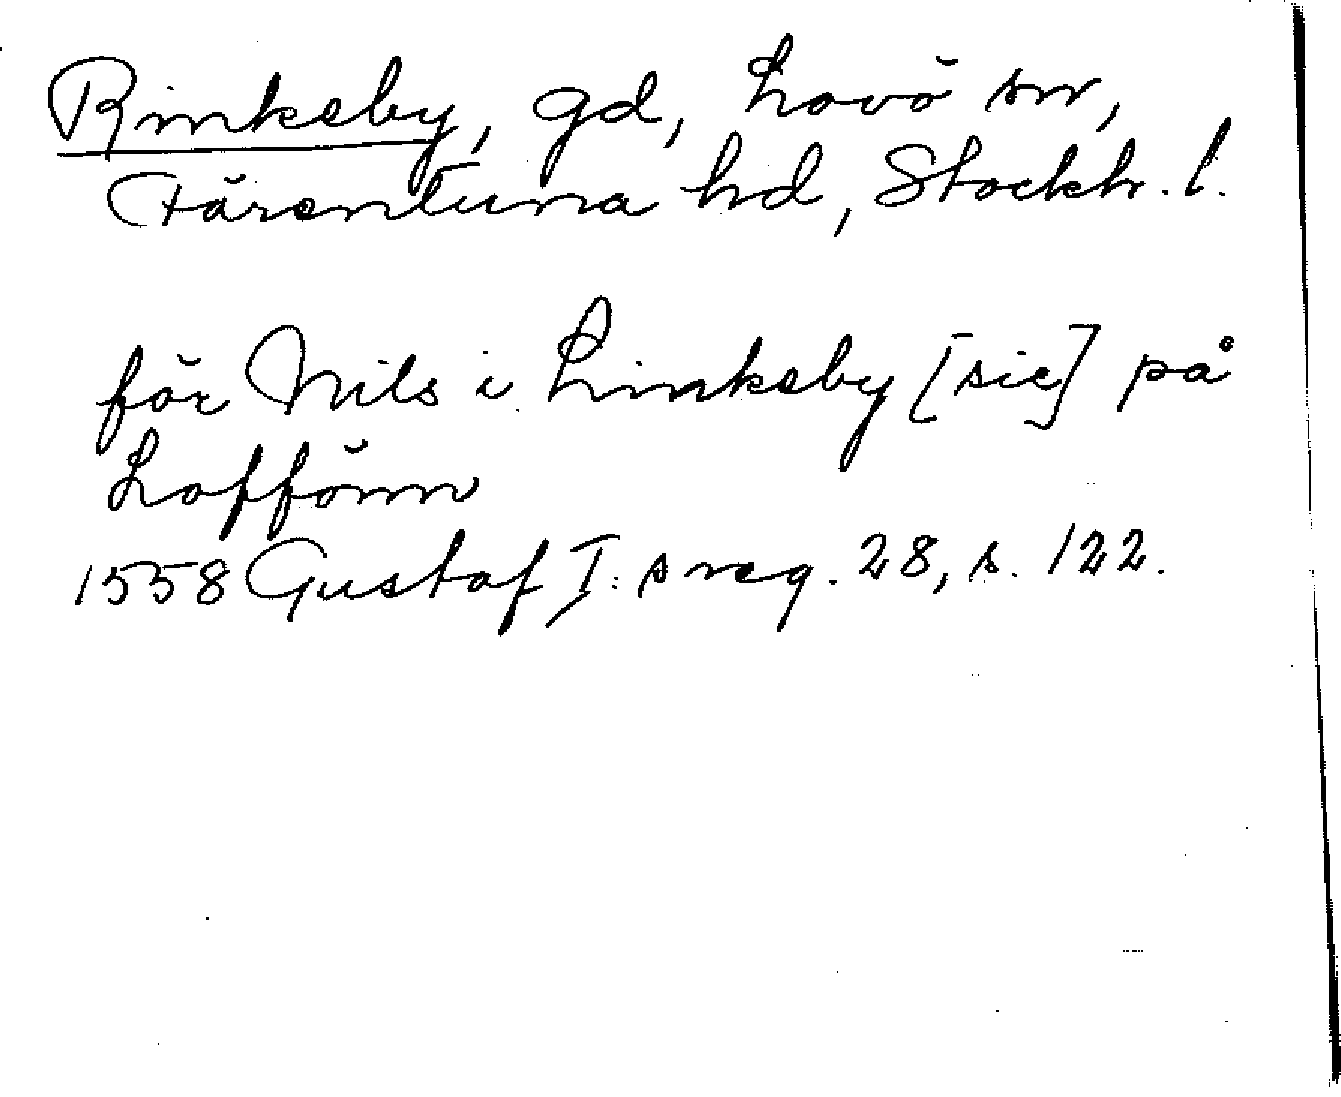 Rinkeby, gd, Lovö sn,
Färentuna hd, Stockh. l.
för Nils i Linkeby [sic] på
Loffönn
1558 Gustaf I:s reg. 28, s. 122.